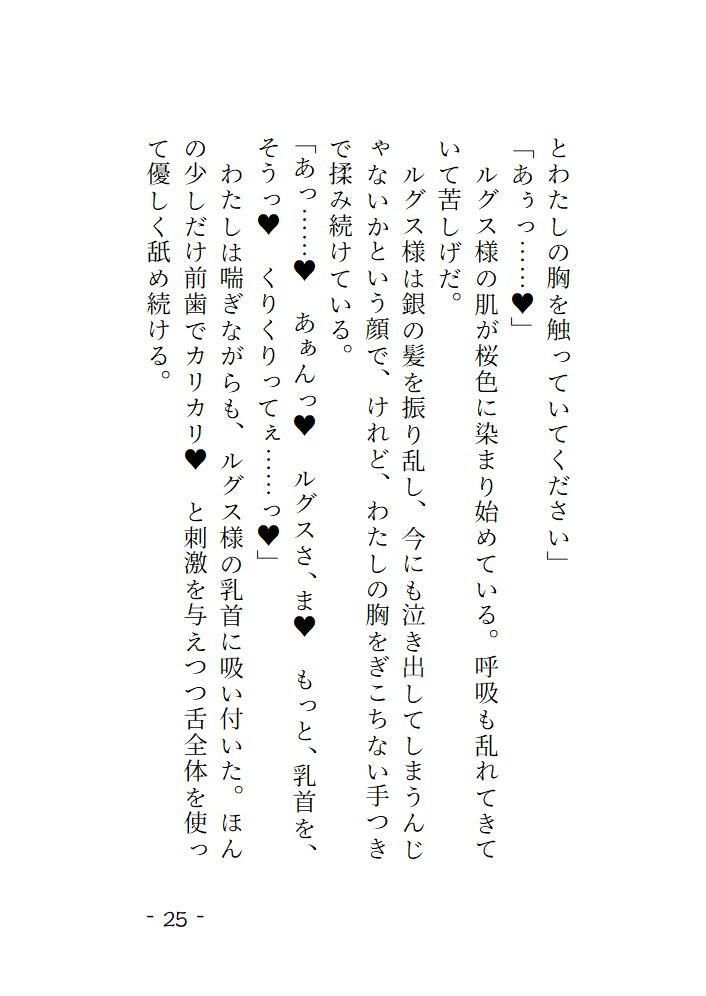 とわたしの胸を触っていてください」
「あぅっ……♥」
　ルグス様の肌が桜色に染まり始めている。呼吸も乱れてきて
いて苦しげだ。
　ルグス様は銀の髪を振り乱し、今にも泣き出してしまうんじ
ゃないかという顔で、けれど、わたしの胸をぎこちない手つき
で揉み続けている。
「あっ……♥　あぁんっ♥　ルグスさ、ま♥　もっと、乳首を、
そうっ♥　くりくりってぇ……っ♥」
　わたしは喘ぎながらも、ルグス様の乳首に吸い付いた。ほん
の少しだけ前歯でカリカリ♥　と刺激を与えつつ舌全体を使っ
て優しく舐め続ける。
- 25 -